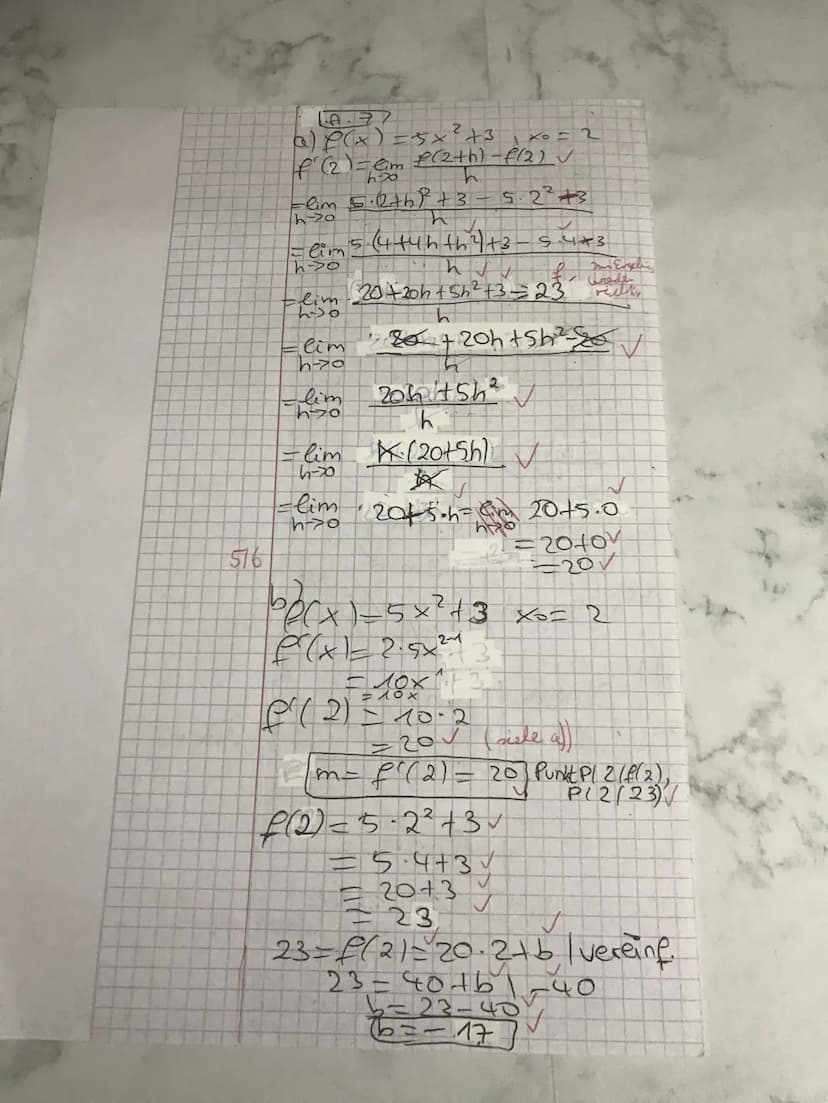 A. 7
a) f(x) = 5x² + 3 , x₀ = 2
f'(2) = lim h->0 f(2+h) - f(2) / h ✓
= lim h->0 5·(2+h)² + 3 - 5·2² + 3 / h
= lim h->0 5·(4+4h+h²)+3 - 5·4+3 / h
= lim h->0 20+20h+5h²+3 = 23 / h f.
= lim h->0 20 + 20h + 5h² - 20 / h ✓
= lim h->0 20h + 5h² / h ✓
= lim h->0 h·(20+5h) / h ✓
= lim h->0 20+5·h = lim h->0 20+5·0 ✓
= 20+0 ✓
5/6
= 20 ✓
b)
f(x) = 5x² + 3 x₀ = 2
f'(x) = 2·5x²⁻¹
= 10x¹
= 10x
f'(2) = 10·2
= 20 ✓ (siehe a))
m = f'(2) = 20 Punkt P(2/f(2),
P(2/23) ✓
f(2) = 5·2² + 3 ✓
= 5·4+3 ✓
= 20+3 ✓
= 23 ✓
23 = f(2) = 20·2+b | vereinf.
23 = 40+b | -40
b = 23-40 ✓
b = -17 ✓